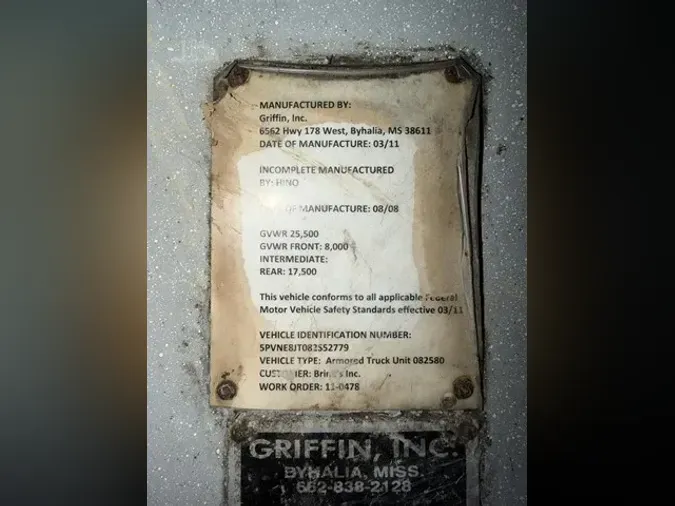 MANUFACTURED BY:
Griffin, Inc.
6562 Hwy 178 West, Byhalia, MS 38611
DATE OF MANUFACTURE: 03/11
INCOMPLETE MANUFACTURED
BY: HINO
OF MANUFACTURE: 08/08
GVWR 25,500
GVWR FRONT: 8,000
INTERMEDIATE:
REAR: 17,500
This vehicle conforms to all applicable Federal
Motor Vehicle Safety Standards effective 03/11
VEHICLE IDENTIFICATION NUMBER:
5PVNE8JT082S52779
VEHICLE TYPE: Armored Truck Unit 082580
CUSTOMER: Brink's Inc.
WORK ORDER: 11-0478
GRIFFIN, INC.
BYHALIA, MISS.
662-838-2128